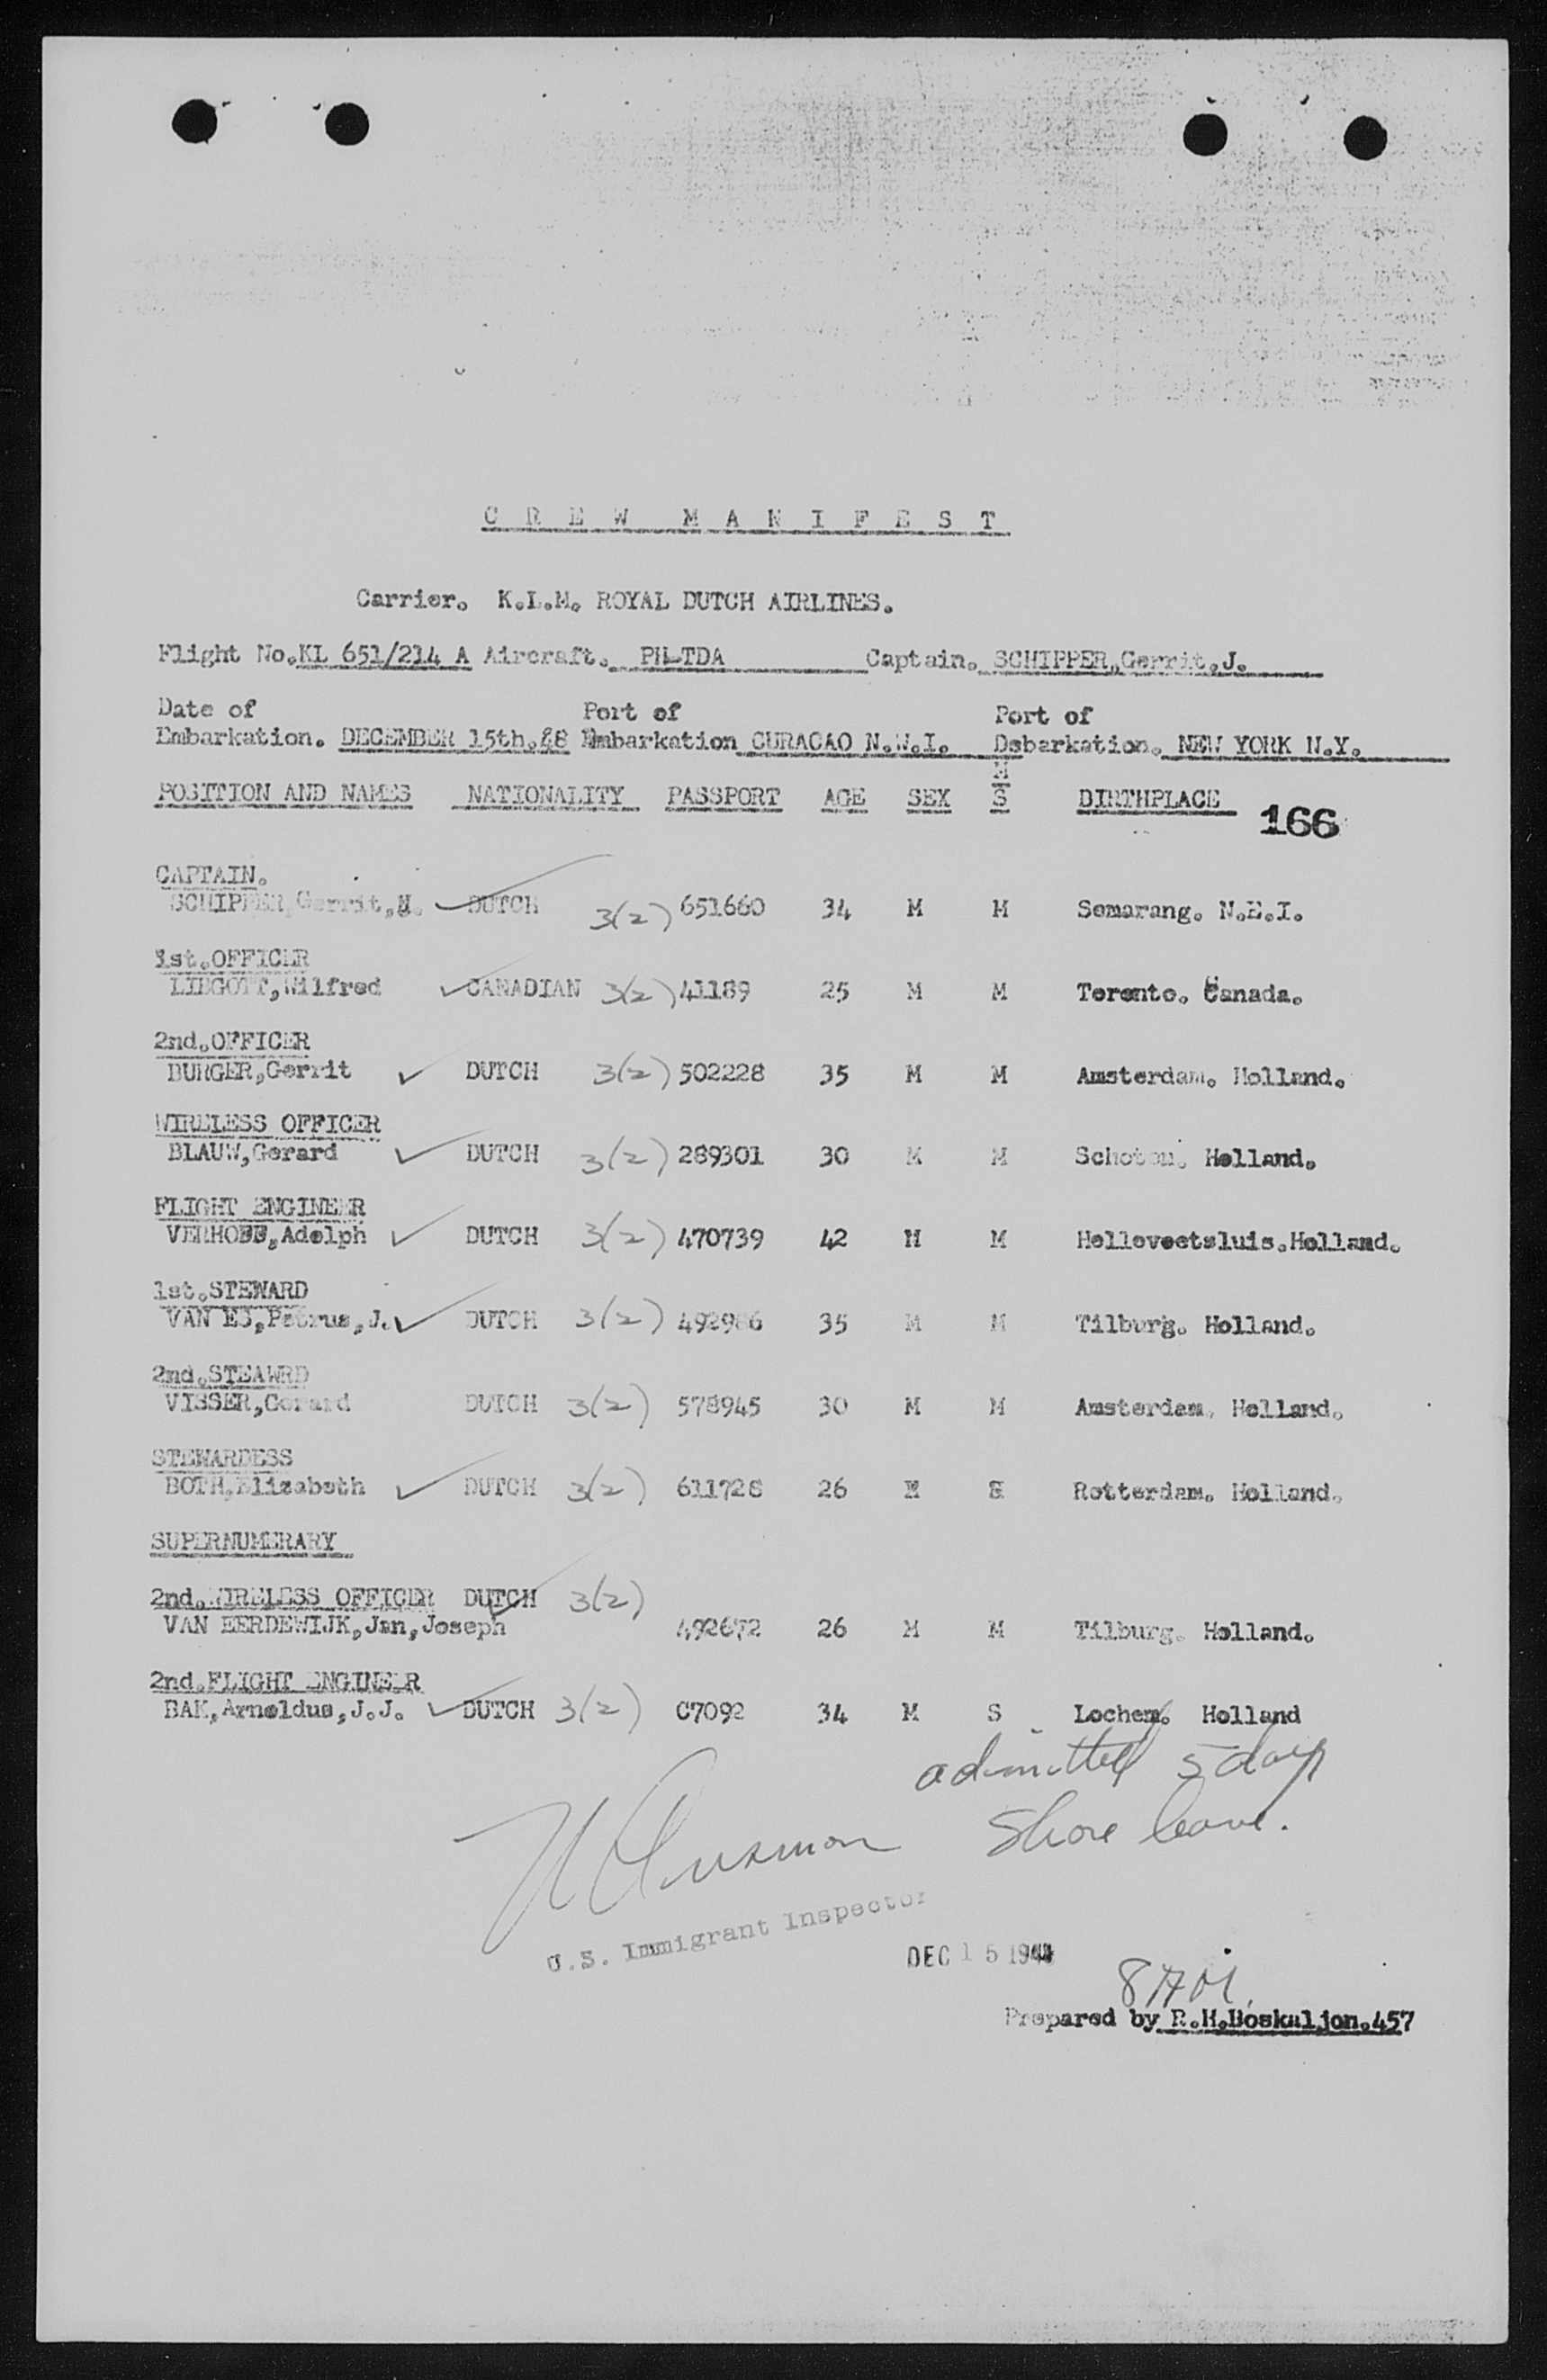 CREW MANIFEST
Carrier. K.L.M. ROYAL DUTCH AIRLINES.
Flight No.KL 651/214 A Aircraft. PH-TDA Captain. SCHIPPER,Gerrit,J.
Date of Port of Port of
Embarkation. DECEMBER 15th.48 Embarkation CURACAO N.W.I. Debarkation. NEW YORK N.Y.
M
POSITION AND NAMES NATIONALITY PASSPORT AGE SEX S BIRTHPLACE 166
CAPTAIN.
SCHIPPER,Gerrit, DUTCH 3(2) 651660 34 M M Semarang. N.E.I.
1st.OFFICER
LIEGOTT,Wilfred CANADIAN 3(2) 41189 25 M M Toronto. Canada.
2nd.OFFICER
BURGER,Gerrit DUTCH 3(2) 502228 35 M M Amsterdam. Holland.
WIRELESS OFFICER
BLAUW,Gerard DUTCH 3(2) 289301 30 M M Schoten. Holland.
FLIGHT ENGINEER
Adolph DUTCH 3(2) 470739 42 M M Hellevoetsluis.Holland.
1st.STEWARD
VAN ES,Petrus,J. DUTCH 3(2) 492986 35 M M Tilburg. Holland.
2nd.STEAWRD
VISSER,Gerard DUTCH 3(2) 578945 30 M M Amsterdam. Holland.
STEWARDESS
BOTH,Elizabeth DUTCH 3(2) 611728 26 Rotterdam. Holland.
SUPERNUMERARY
2nd.WIRELESS OFFICER DUTCH 3(2)
VAN EERDEWIJK,Jan,Joseph 492672 26 M M Tilburg. Holland.
2nd.FLIGHT ENGINEER
BAK,Arnoldus,J.J. DUTCH 3(2) C7092 34 M S Lochem. Holland
admitted 5 days
shore leave.
U.S. Immigrant Inspector
DEC 15 194
8 AM.
Prepared by R.H.Boskaljon.457